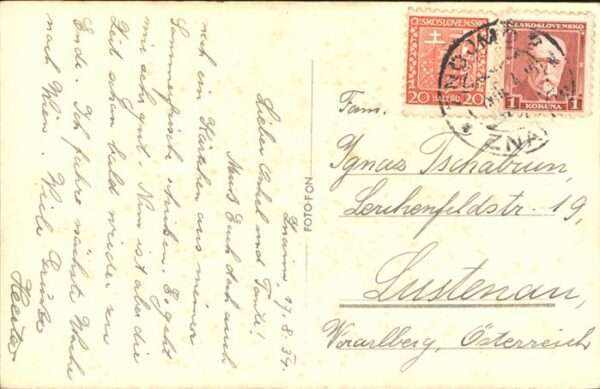 Znaim, 17.8.34.
Lieber Onkel und Tante!
Muß Euch doch auch
noch ein Kärtchen aus meiner
Sommerfrische schicken. Es geht
mir sehr gut. Nun ist aber die
Zeit schon bald wieder zu
Ende. Ich fahre nächste Woche
nach Wien. Viele Grüße
FOTOFON
ČESKOSLOVENSKO
20 HALÉŘŮ 20
ČESKOSLOVENSKO
1 KORUNA 1
ZNOJMO
ZNAIM
Fam.
Ignaz Tschabrun,
Lerchenfeldstr. 19,
Lustenau,
Vorarlberg, Österreich